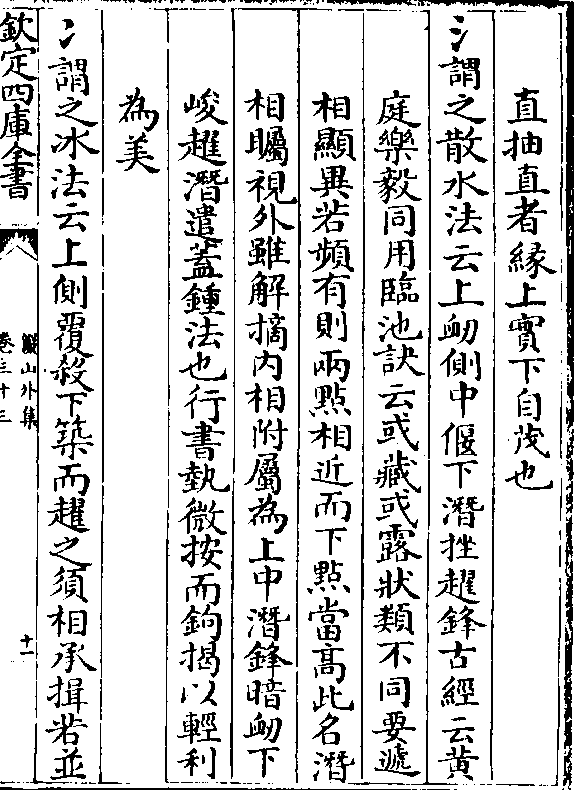 直抽直者緣上實下自茂也
氵謂之散水法云上衂側中偃下潛挫趯鋒古經云黃
庭樂毅同用臨池訣云或藏或露狀類不同要遞
相顯異若頻有則兩點相近而下點當高此名潛
相矚視外雖解摘内相附屬為上中潛鋒暗衂下
峻趯潛遣蓋鍾法也行書勢微按而鉤揭以輕利
為美
冫謂之冰法云上側覆殺下築而趯之須相承揖若並
欽定四庫全書
弇山外集
卷三十三
十一